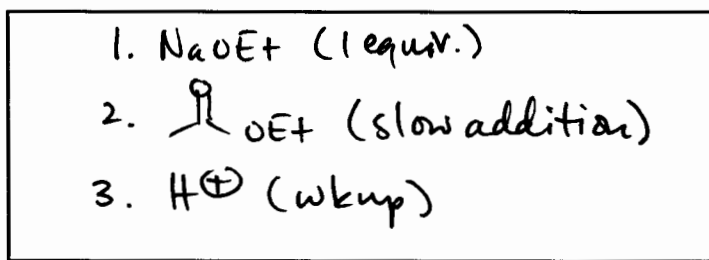 1. NaOEt (1 equiv.)
2. O OEt (slow addition)
3. H⊕ (wkup)